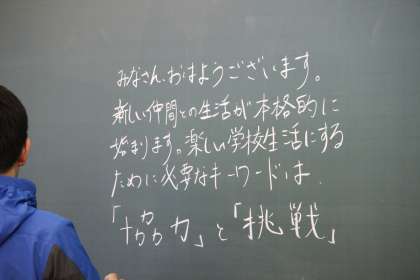 みなさん、おはようございます。
新しい仲間との生活が本格的に
始まります。楽しい学校生活にする
ために必要なキーワードは、
「協力」と「挑戦」